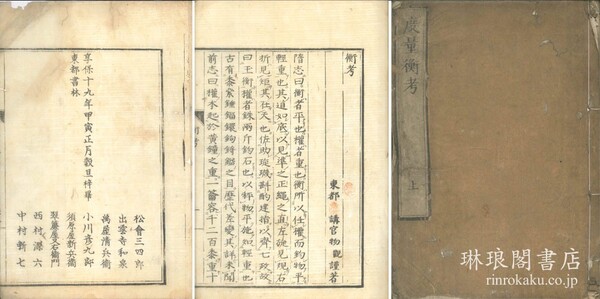 度量衡考
上
衡考
東都 講官物觀謹著
隋志曰衡者平也權者重也衡所以任權而鈞物平
輕重也其道如底以見準之正繩之直左旋見規右
折見矩其在天也佐助旋璣斟酌建指以齊七政故
曰玉衡權者銖兩斤鈞石也以秤物平施知輕重也
古有黍絫錘錙鐶鈞鋝鎰之目歷代差變其詳未聞
前志曰權本起於黃鍾之重一龠容千二百黍重十
衡考
享保十九年甲寅正月穀旦梓畢
東都書林
松會三四郎
出雲寺和泉
萬屋清兵衛
小川彦九郎
須原屋新兵衛
翠簾屋又右衛門
西村源六
中村新七
琳琅閣書店
rinrokaku.com